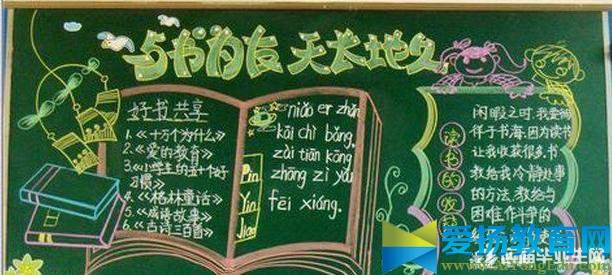 与书为友 天长地久
好书共享
1.《十万个为什么》
2.《爱的教育》
3.《小学生的五十个好
习惯》
4.《格林童话》
5.《成语故事》
6.《古诗三百首》
niǎo er zhǎn
kāi chì bǎng,
zài tiān kōng
zhōng zì yóu
fēi xiáng.
读书的收
闲暇之时,我爱徜
徉于书海,因为读书
让我收获很多.书
教给我冷静处事
的方法,教给与
困难作斗争的
使
爱扬教育网